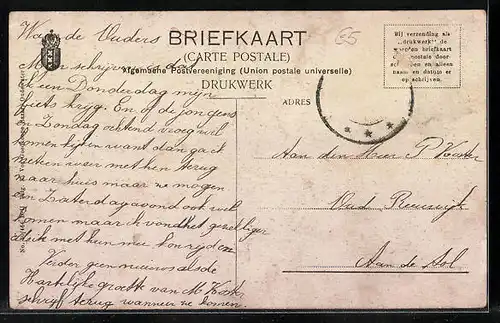 BRIEFKAART
(CARTE POSTALE)
Algemeene Postvereeniging (Union postale universelle)
DRUKWERK
ADRES
Bij verzending als
„drukwerk” de
woorden briefkaart
postale door-
en alleen
naam en datum er
op schrijven.
55
Waarde Ouders
schrijven dat
ik een Donderdag mijn
fiets kryg. En of de jongens
Zondag ochtend vroeg wil
komen kyken want dan ga ik
meteen weer met hen terug
naar huis maar ze mogen
Zaterdagavond ook wel
komen maar ik vond het gezelliger
dat ik met hun mee kon ryden
Verder geen nieuws als de
Hartelijke groette van M
schryf terug wanneer ze komen.
Aan den Heer P
Oud Reeuwijk
Aan de